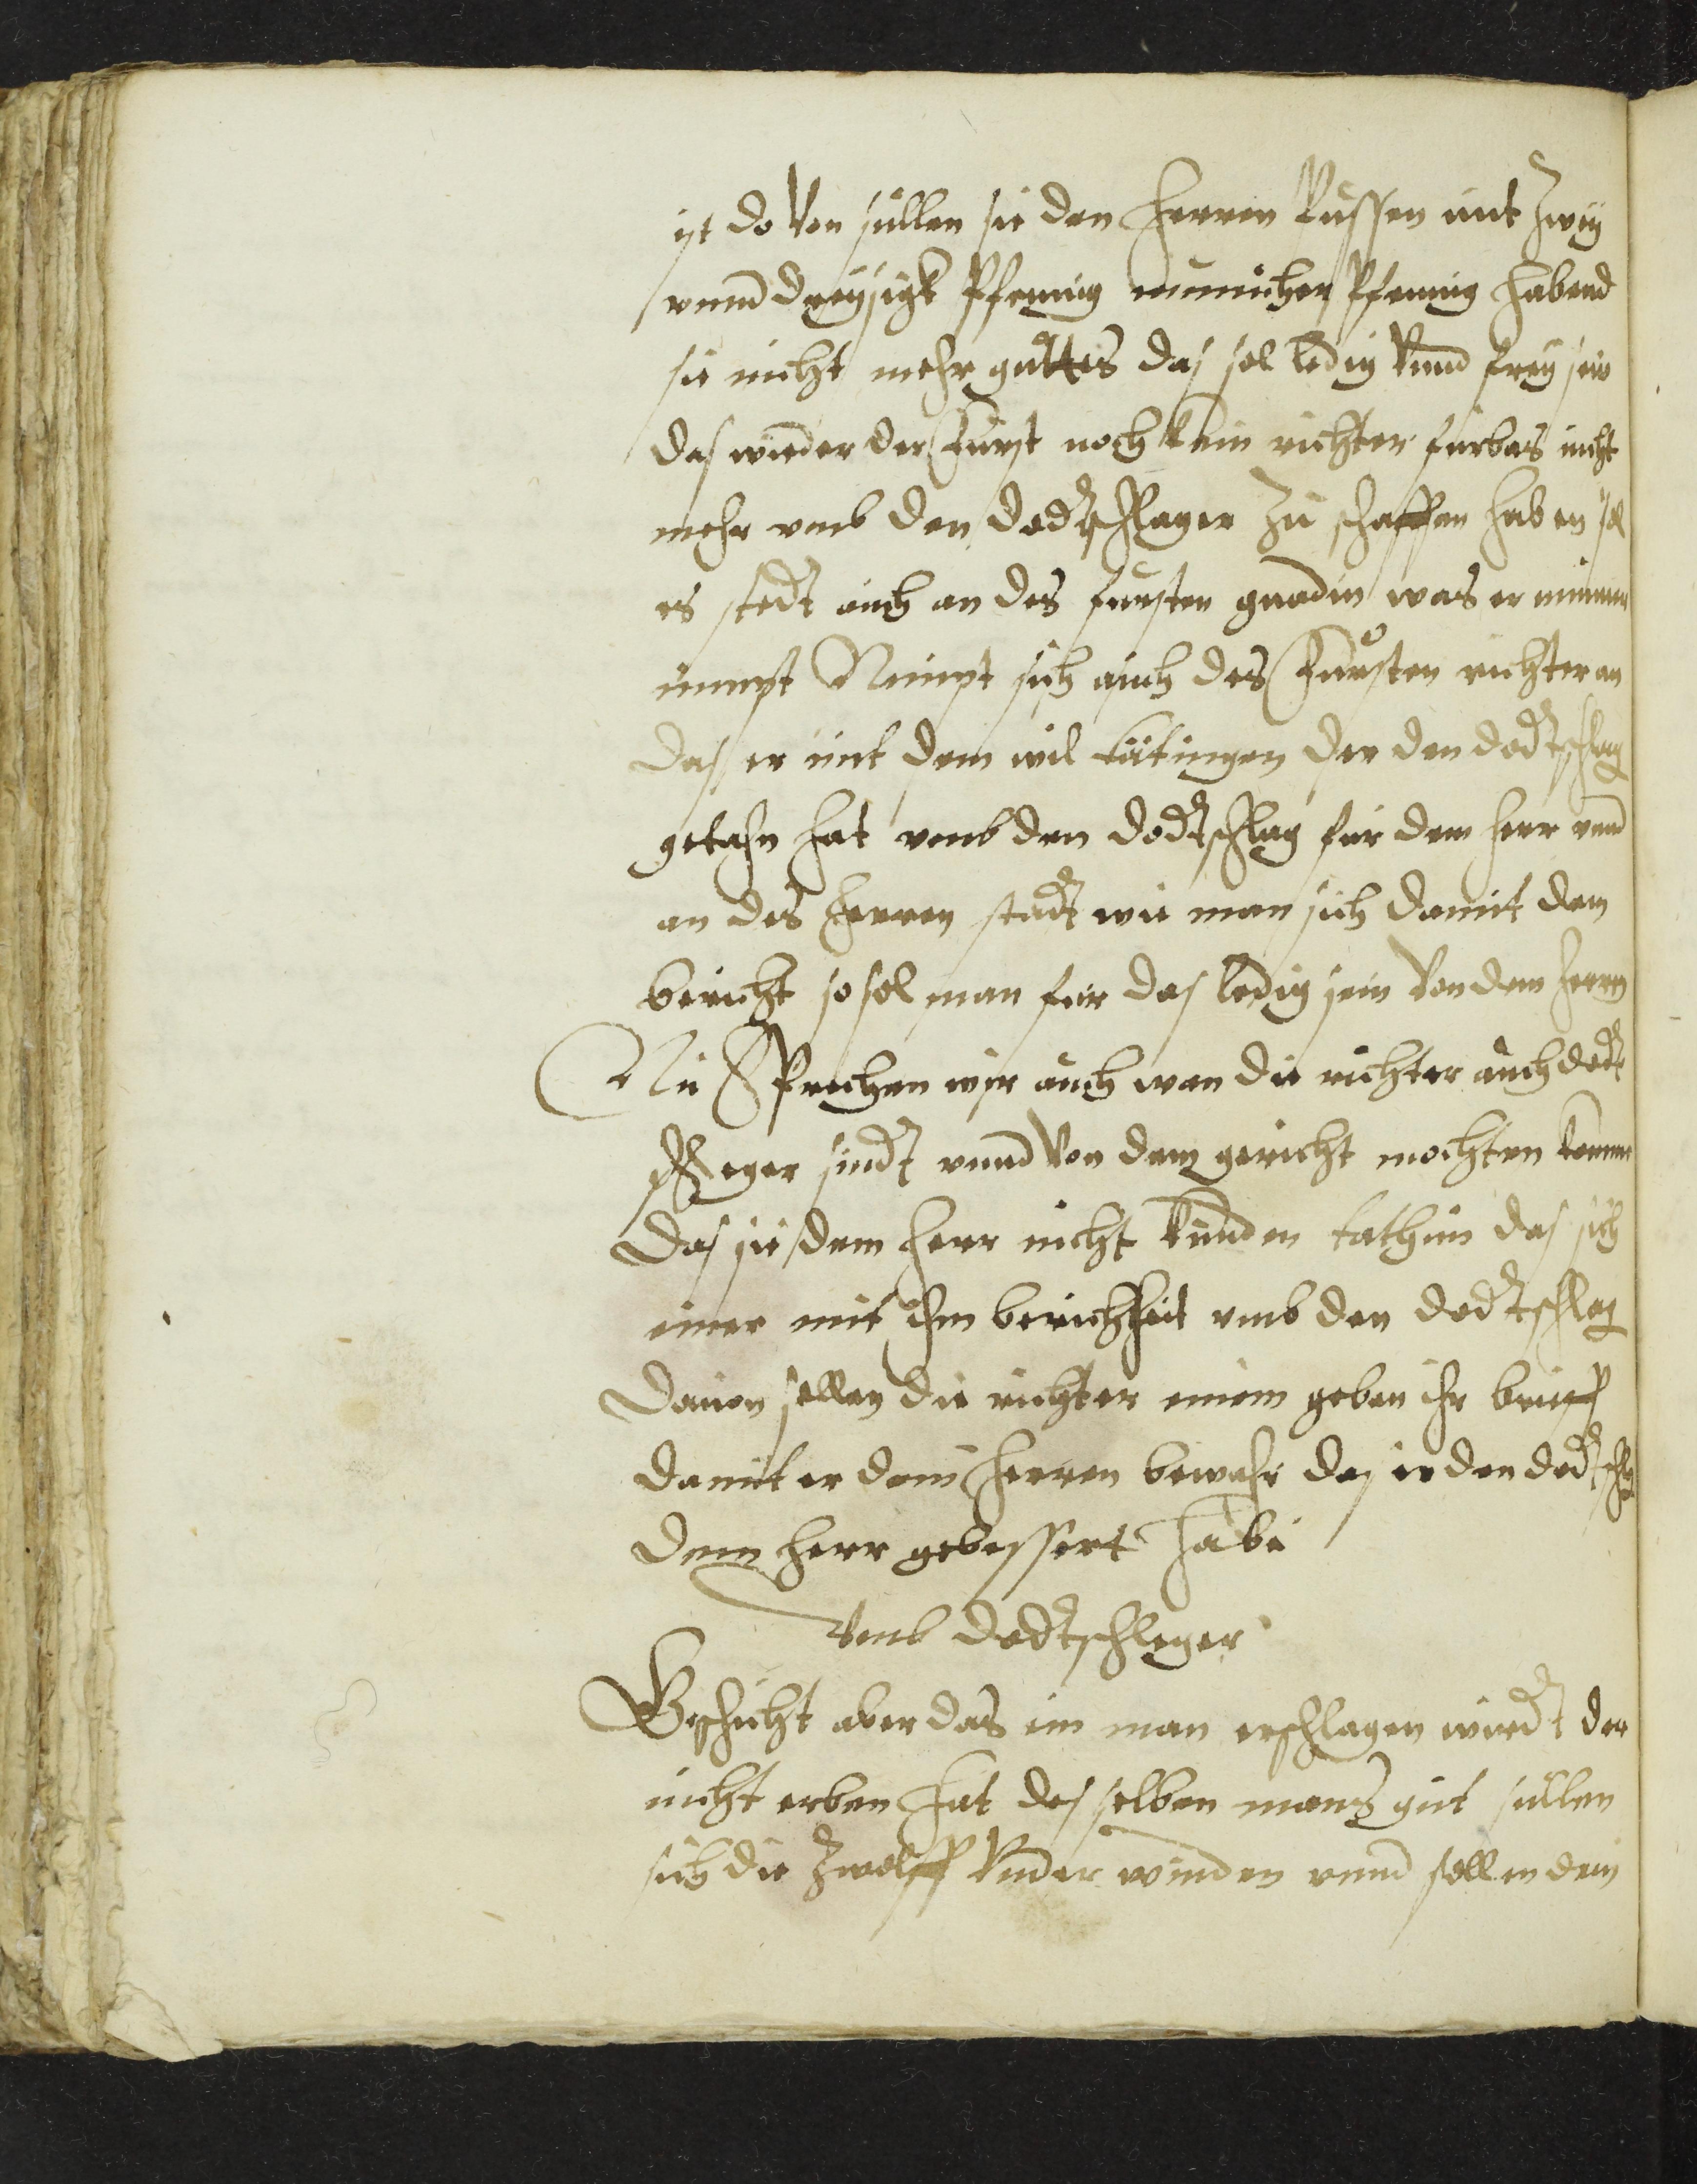 ist do von sullen sie den herren bussen mit zwey
vnnd dreysigk Pfennig municher Pfennig habend
sie nicht mehr guttes das sol ledig vnnd frey sein
das wieder der Furst noch kein richter furbas nicht
mehr vmb den dodtschlager zu schaffen haben sol
es stedt auch an des fursten gnadin was er
nimpt Nimpt sich auch des Fursten richter an
das er mit dem wil tatingen der den dodtschlag
gethan hat vmb den dodtschlag fur dem herr vnnd
an des herren stadt wie man sich damit dem
bericht so sol man fur das ledig sein von dem herrn
Nu Sprechen wir auch wan die richter auch dodt
schleger sindt vnnd von dem gericht mochten komen
das sie dem herr nicht kunden das sich
einer mit ihm bericht hat vmb den dodtschlag
dauon sollen die richter einem geben ihr brieff
damit er dem herren bewahr das er den dodtschlag
dem herr gebessert habe
Vmb dodtschleger
Geschicht aber das ein man erschlagen wirdt der
nicht erben hat desselben mans gut sullen
sich die zwolff vnder winden vnnd sollen dem